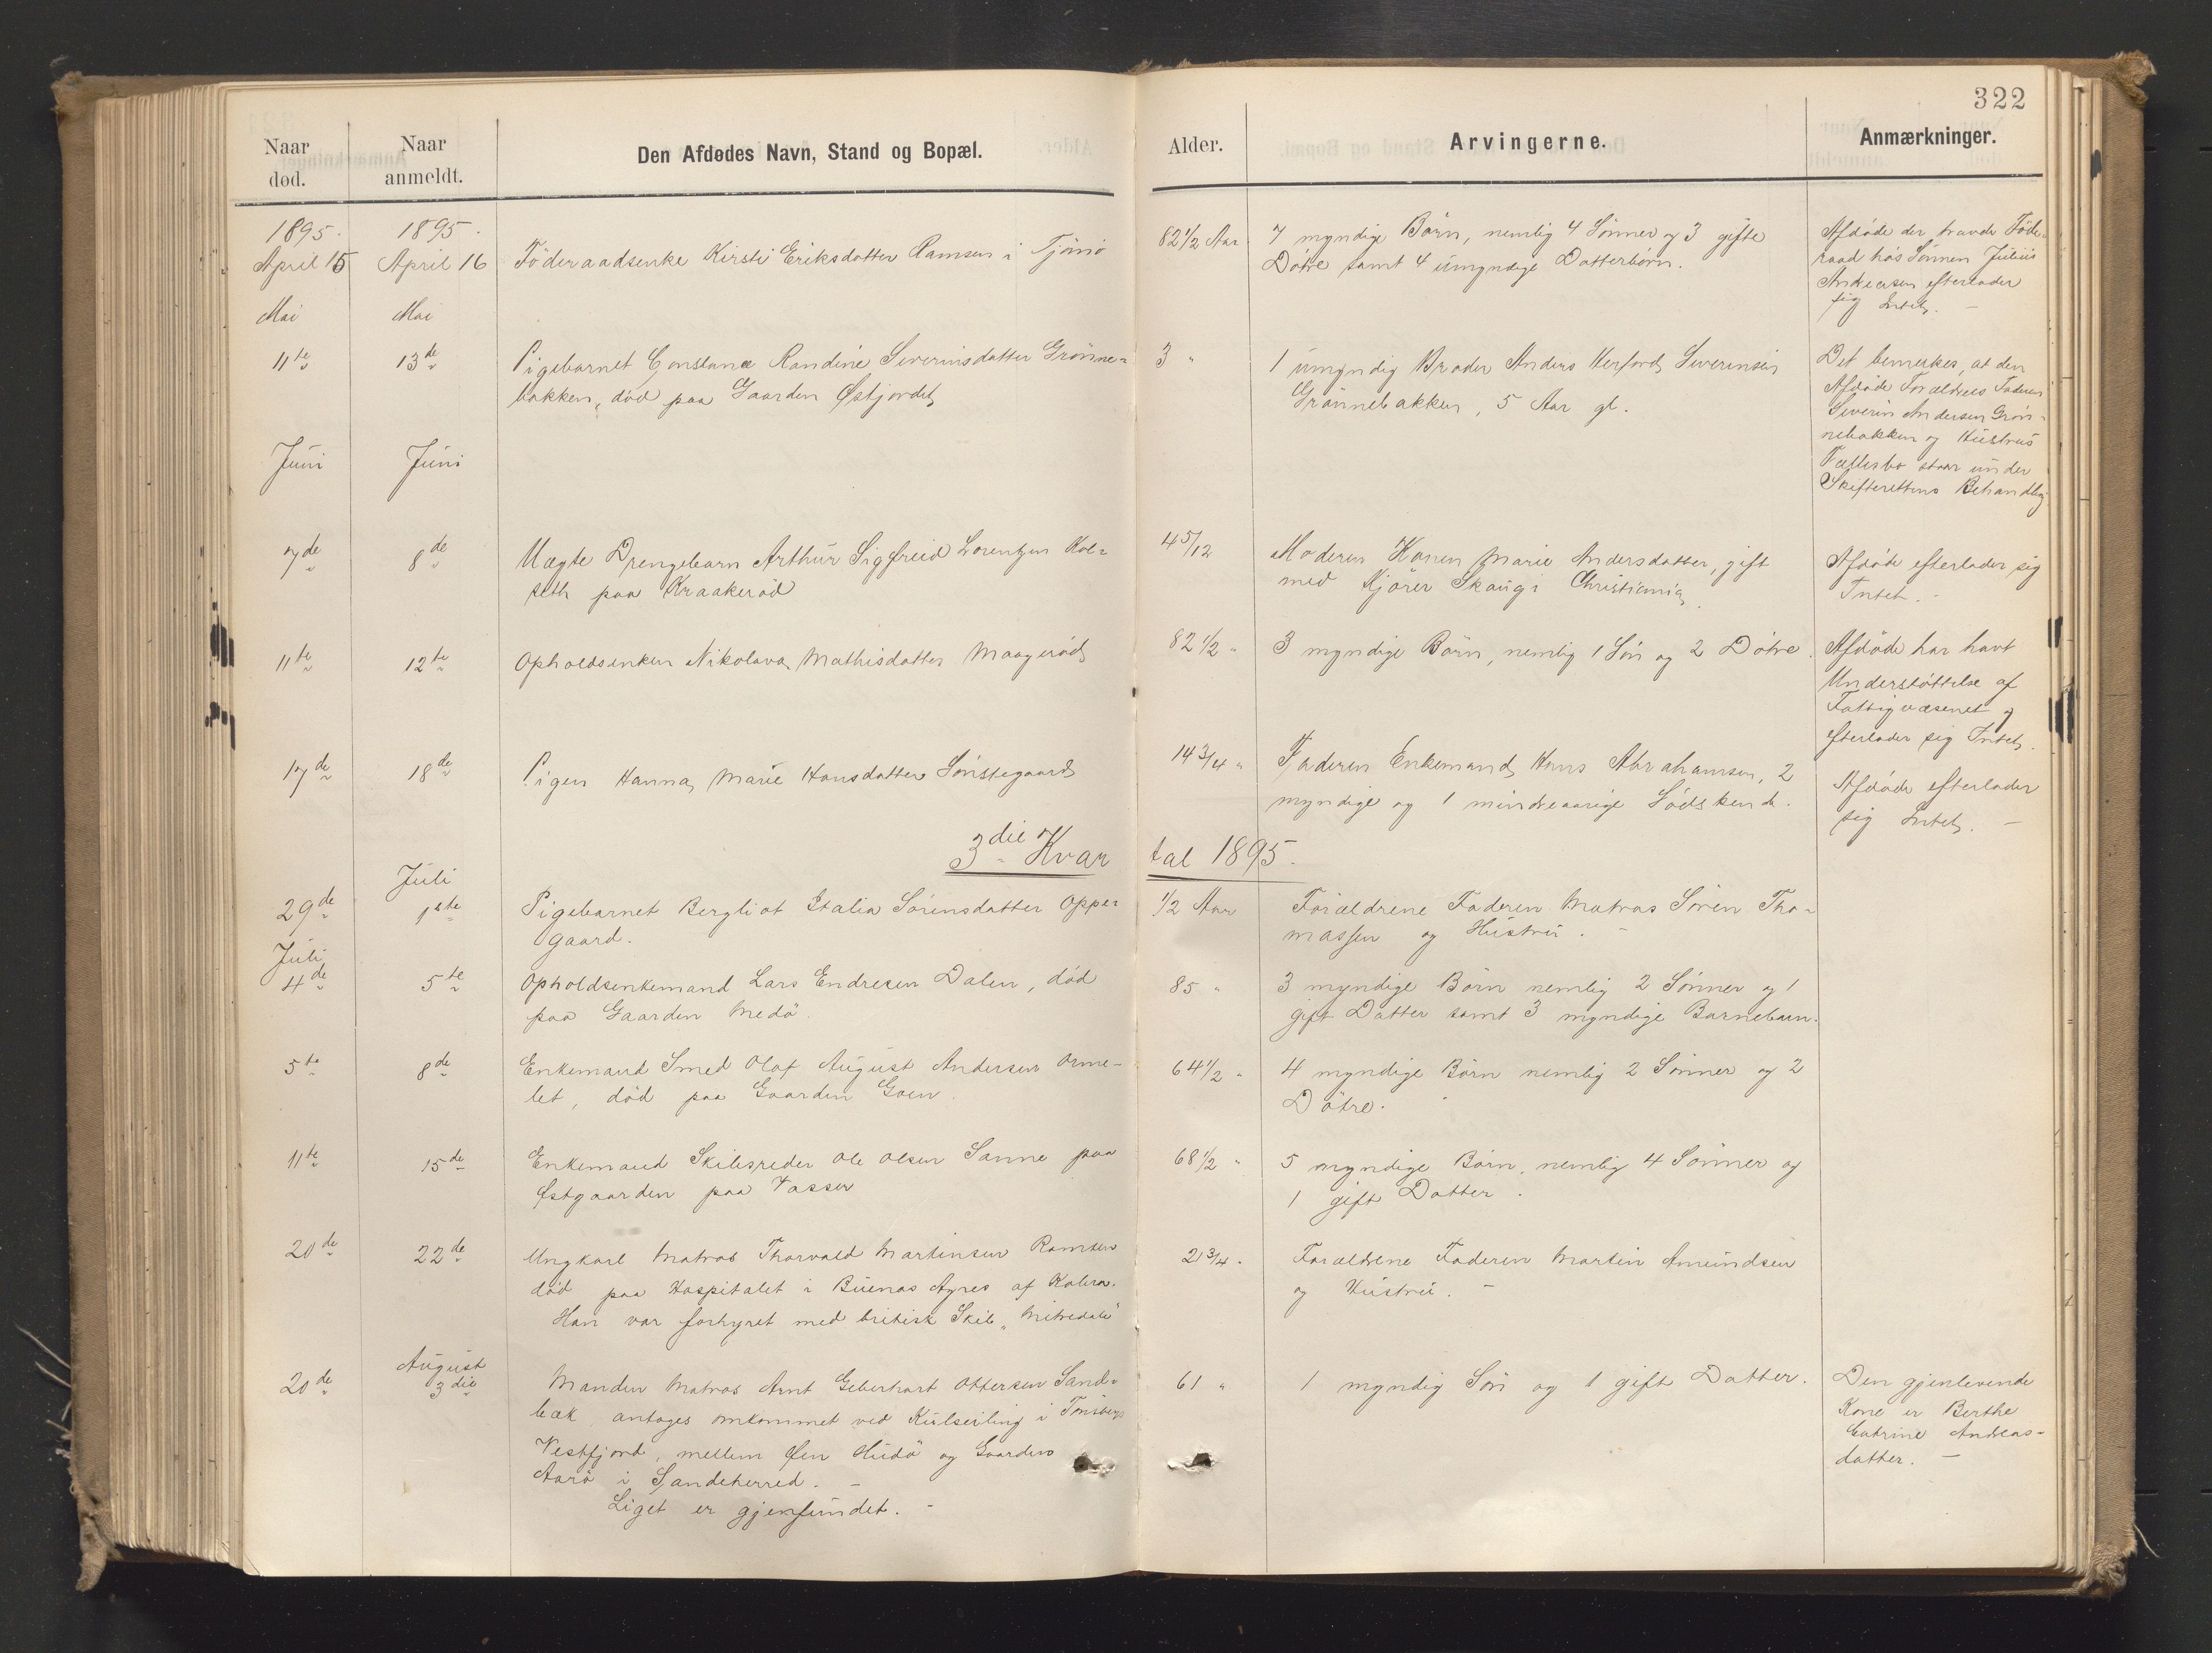 322
Naar død.
Naar anmeldt.
Den Afdødes Navn, Stand og Bopæl.
Alder.
Arvingerne.
Anmærkninger.
1895.
April 15
1895.
April 16
Föderaadsenke Kirsti Eriksdatter Ramsen i Tjömö
82 1/2 Aar
7 myndige Börn, nemlig 4 Sönner og 3 gifte
Dötre samt 4 umyndige Datterbörn.
Afdöde der havde Föde-
raad hos Sönnen Julius
Andersen efterlader
sig Intet. –
Mai
11te
Mai
13de
Pigebarnet Constance Randine Severinsdatter Grönne-
bakken, död paa Gaarden Østjordet
3 "
1 umyndig Broder Anders Herford Severinsen
Grönnebakken, 5 Aar gl.
Det bemerkes, at den
Afdöde Forældres Faderen
Severin Andersen Grön-
nebakken og Hustrus
Fællesbo staar under
Skifterettens Behandling
Juni
Juni
7de
8de
Uægte Drengebarn Arthur Sigfreid Lorentzen Hol-
seth paa Kraakeröd
4 5/12
Moderen Konen Marie Andersdatter, gift
med Kjörer Skaug i Christiania.
Afdöde efterlader sig
Intet. –
11te
12te
Opholdsenken Nikolava Mathisdatter Maageröd
82 1/2 "
3 myndige Börn, nemlig 1 Sön og 2 Dötre.
Afdöde har havt
Understöttelse af
Fattigvæsenet og
efterlader sig Intet.
17de
18de
Pigen Hanna Marie Hansdatter Sönstegaard
14 3/4 "
Faderen Enkemand Hans Abrahamsen, 2
myndige og 1 mindreaarige Södskende.
Afdöde efterlader
sig Intet. –
3die Kvartal 1895.
29de
Juli
1ste
Pigebarnet Bergliot Italia Sörensdatter Opper
gaard.
1/2 Aar
Forældrene Faderen Matros Sören Tho-
massen og Hustru. –
Juli
4de
5te
Opholdsenkemand Lars Endresen Dalen, död
paa Gaarden Medö.
85 "
3 myndige Börn nemlig 2 Sönner og 1
gift Datter samt 3 myndige Barnebarn.
5te
8de
Enkemand Smed Olof August Andersen Orme-
let, död paa Gaarden Goen.
64 1/2 "
4 myndige Börn nemlig 2 Sönner og 2
Dötre.
11te
15de
Enkemand Skibsreder Ole Olsen Sanne paa
Østgaarden paa Vasser
68 1/2 "
5 myndige Börn, nemlig 4 Sönner og
1 gift Datter.
20de
22de
Ungkarl Matros Thorvald Martinsen Ramsen
död paa Hospitalet i Buenos Ayres af Kolera.
Han var forhyret med britisk Skib „Mitredale"
21 3/4 "
Forældrene Faderen Martin Amundsen
og Hustru. –
20de
August
3die
Manden Matros Arnt Geberhart Ottersen Sand-
bæk, antages omkommet ved Kulseiling i Tönsbergs
Vestfjord, mellem Øen Hudö og Gaarden
Aarö i Sandeherred. –
Liget er gjenfundet. –
61 "
1 myndig Sön og 1 gift Datter.
Den gjenlevende
Kone er Berthe
Catrine Andreas-
datter. –